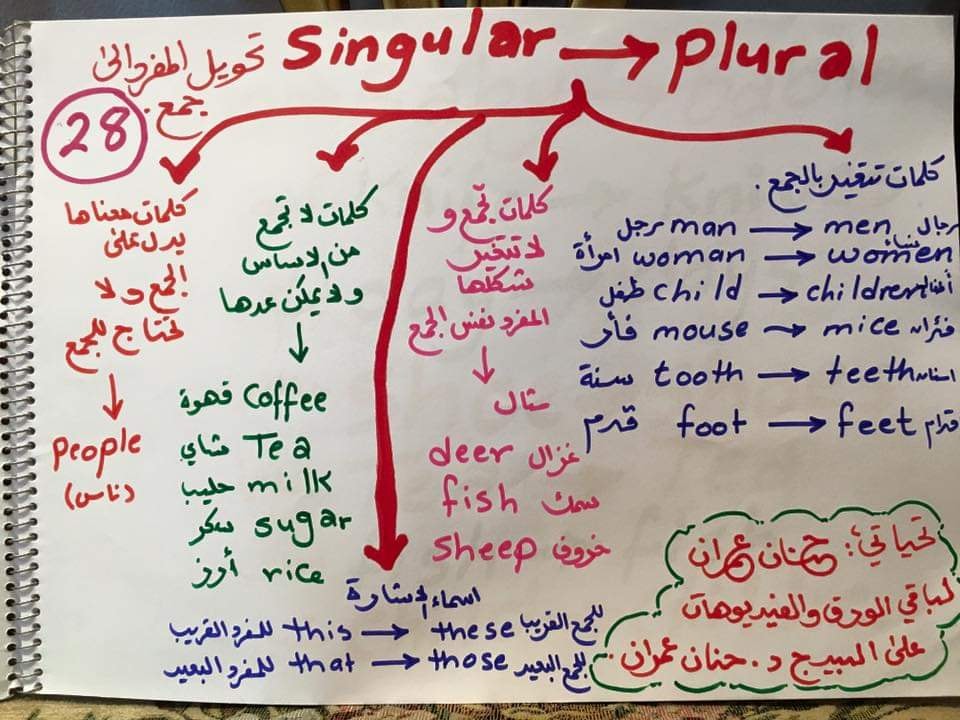 Singular → Plural
تحويل المفرد الى
جمع.
28
كلمات تتغير بالجمع.
رجل man → men رجال
امرأة woman → women نساء
طفل child → children أطفال
فأر mouse → mice فئران
سنة tooth → teeth اسنان
قدم foot → feet اقدام
كلمات تجمع و
لا تتغير
شكلها
المفرد نفس الجمع
↓
مثال
deer غزال
fish سمك
sheep خروف
كلمات لا تجمع
من الاساس
ولا يمكن عدها
↓
قهوة Coffee
شاي Tea
حليب milk
سكر sugar
أرز rice
كلمات معناها
يدل على
الجمع ولا
تحتاج للجمع
↓
People
(ناس)
اسماء الاشارة
للمفرد القريب this → these للجمع القريب
للمفرد البعيد that → those للجمع البعيد
تحياتي: حنان عمران
لباقي الورق والفيديوهات
على البيج د. حنان عمران.